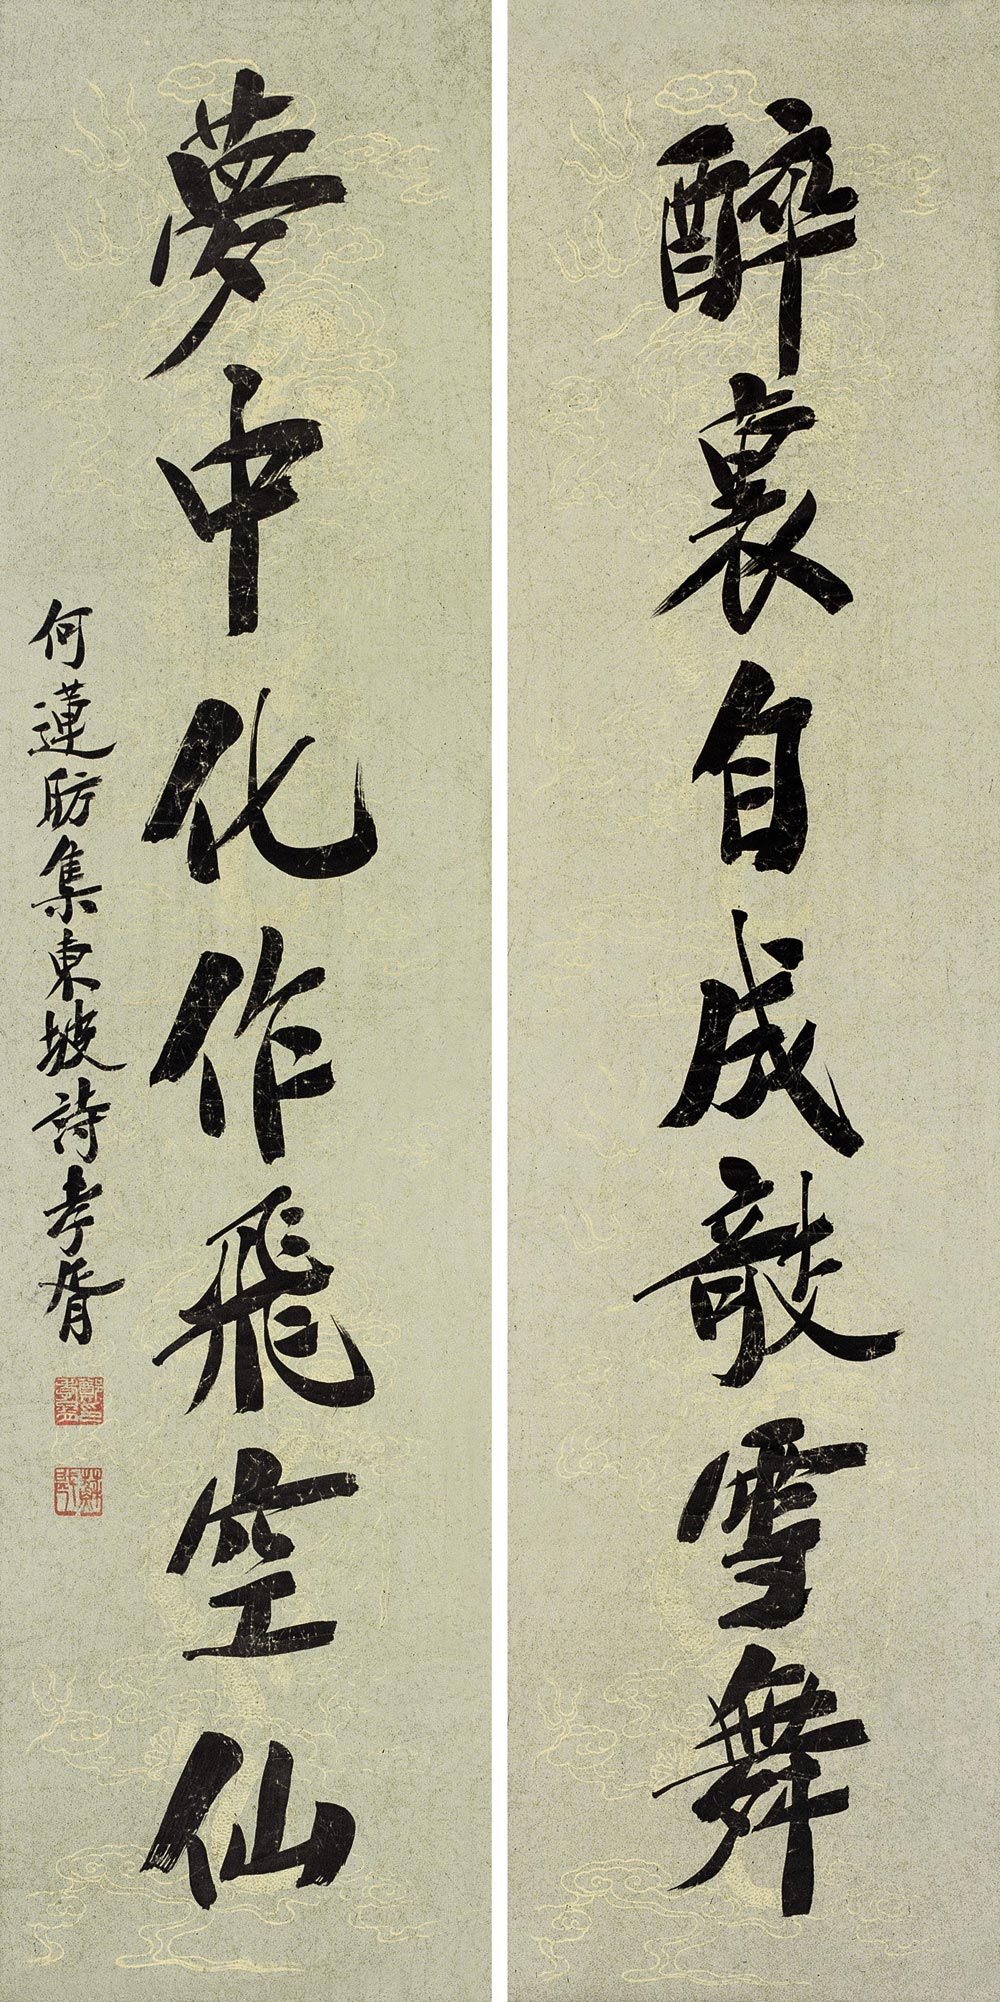 醉裏自成攲雪舞
夢中化作飛空仙
何蓮舫集東坡詩孝胥
鄭印孝胥